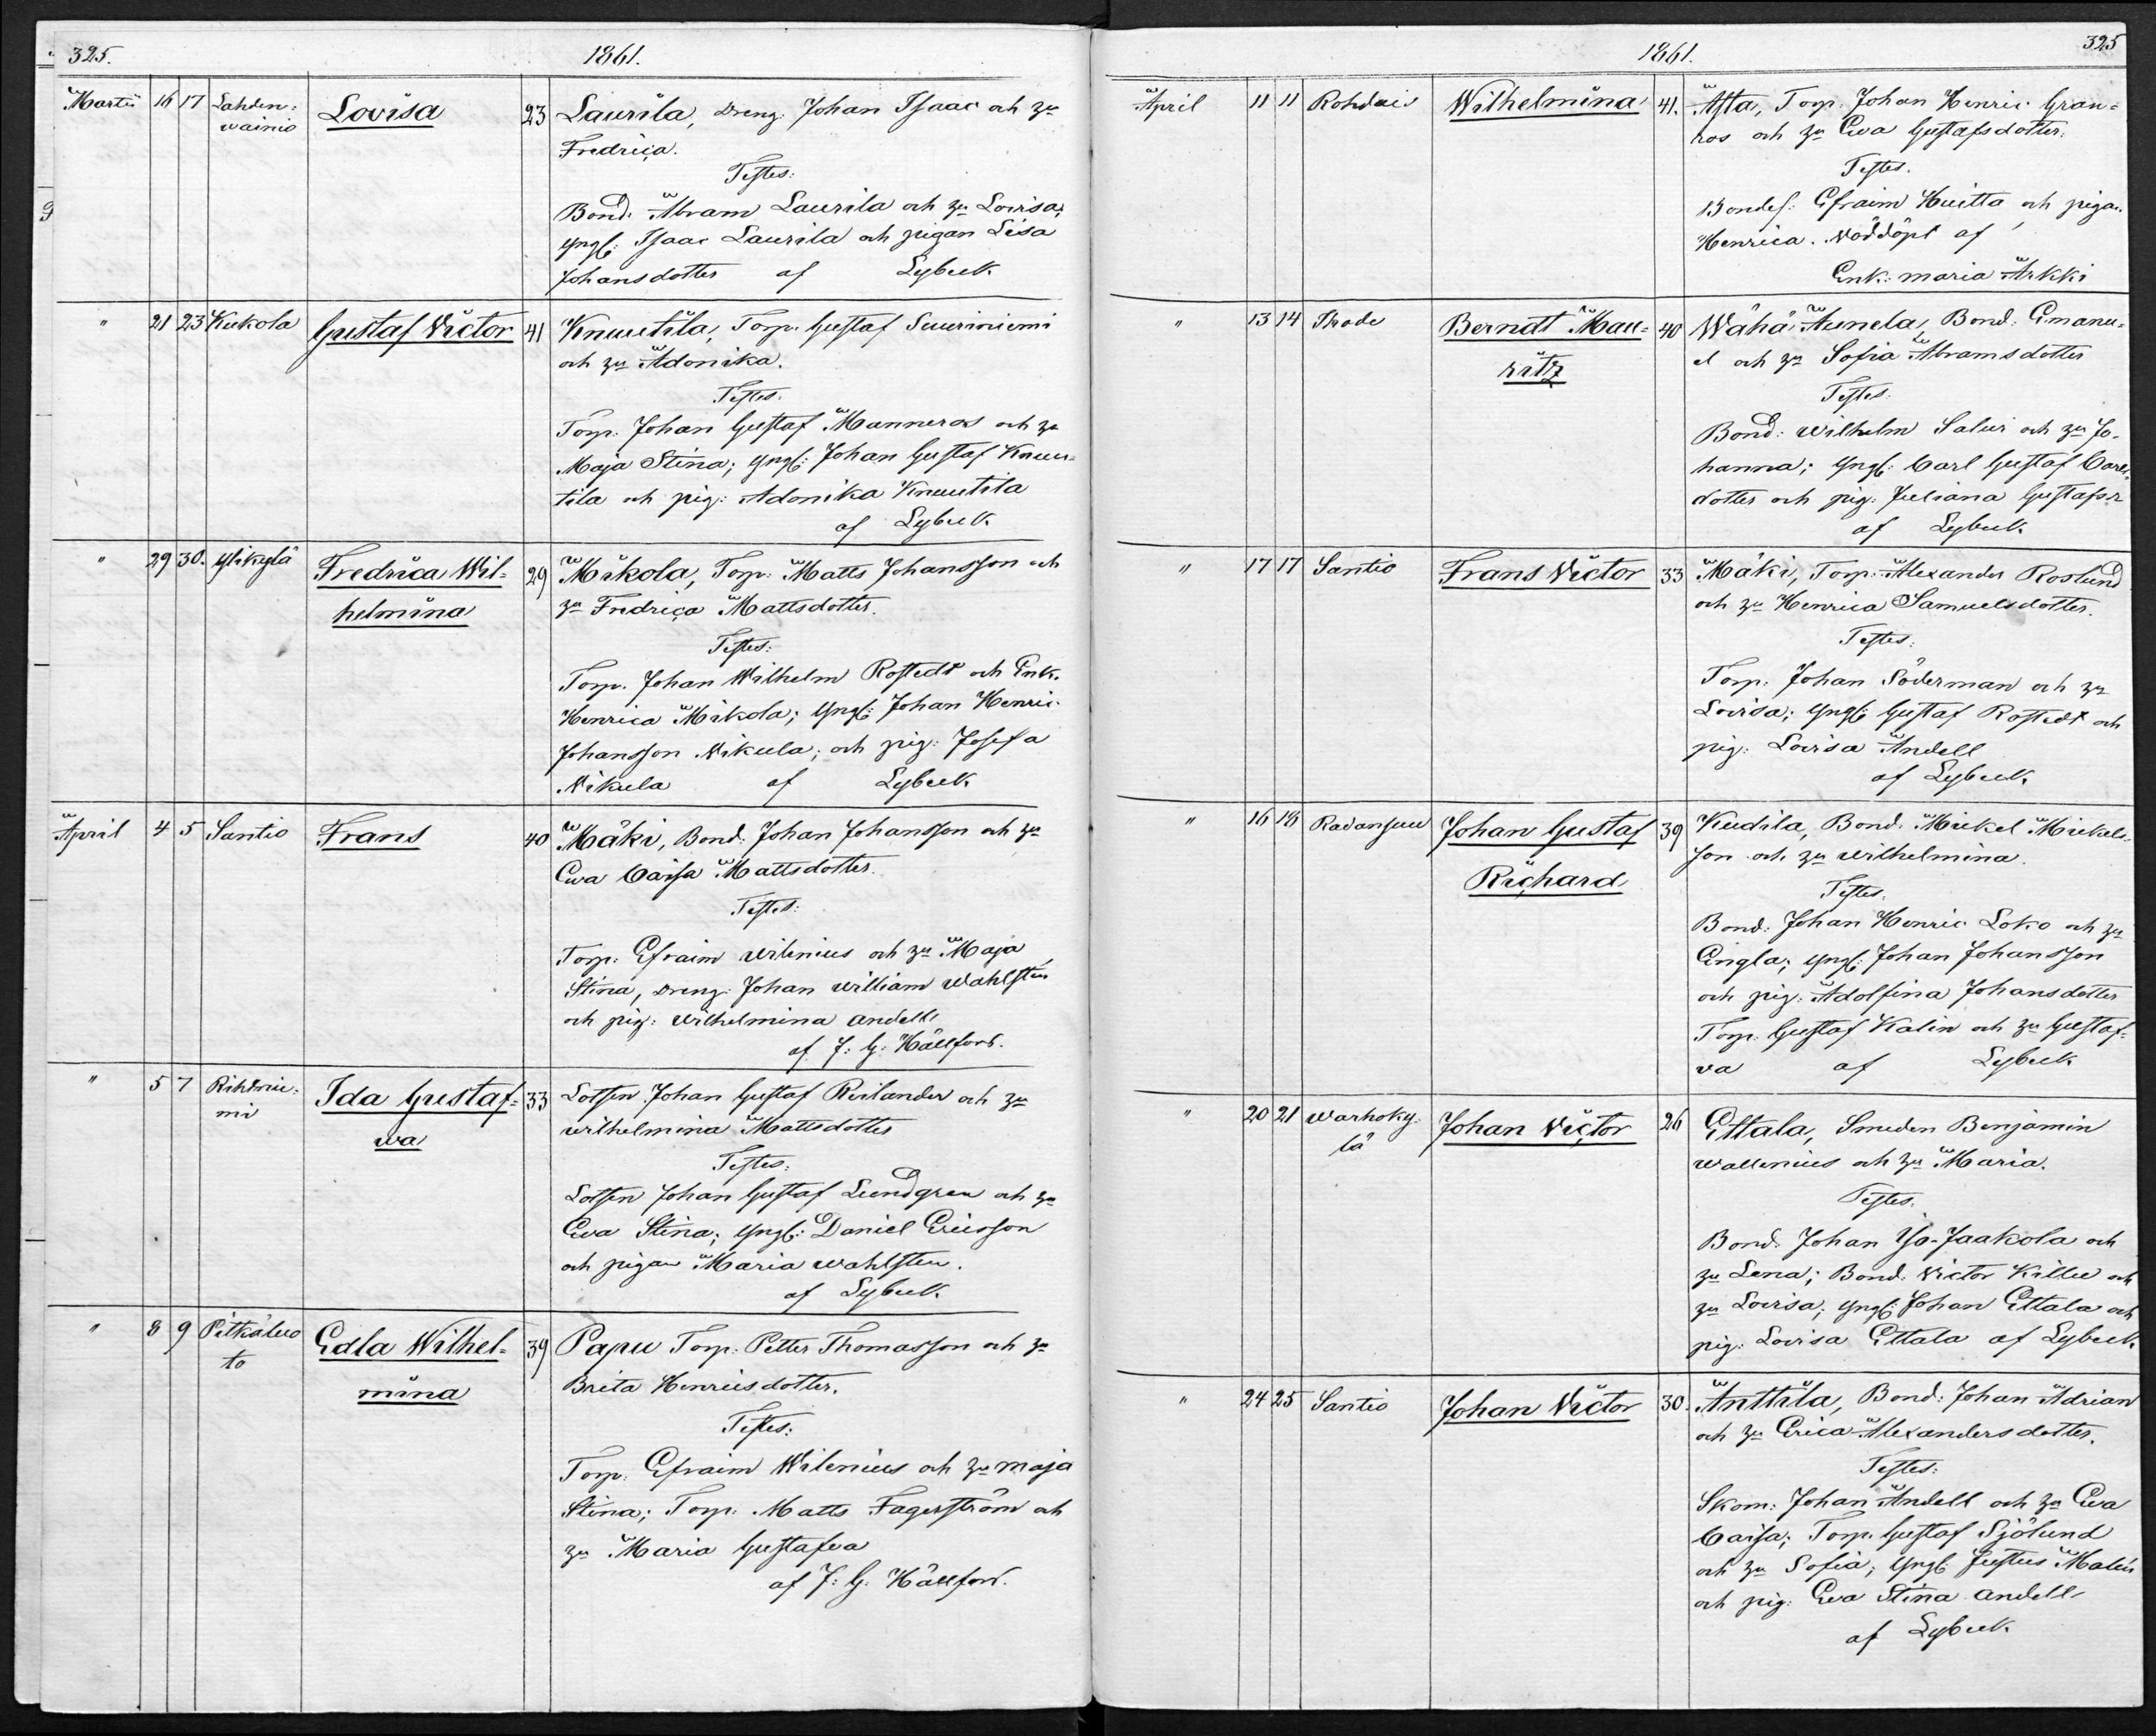 325.
1861.
Martii 16 17 Lahden- Lovisa 23 Laurila, Dreng: Johan Isaac och hu
wainio
Fredrica.
Testes:
Bond: Abram Laurila och hu Lovisa;
yngl: Isaac Laurila och pigan Lisa
Johansdotter af Lybeck
" 21 23 Kukola Gustaf Victor 41 Knuutila, Torp: Gustaf Suuriniemi
och hu Adonika.
Testes.
Torp: Johan Gustaf Manneros och hu
Maja Stina; yngl: Johan Gustaf Knuu-
tila och pig: Adonika Knuutila
af Lybeck
" 29 30. Ylikylä Fredrica Wil- 29 Mikola, Torp: Matts Johansson och
helmina
hu Fredrica Mattsdotter.
Testes:
Torp. Johan Wilhelm Rostedt och Enk.
Henrica Mikola; yngl: Johan Henric
Johansson Nikula; och pig: Josefa
Nikula af Lybeck
April 4 5 Santio Frans 40 Mäki, Bond: Johan Johansson och hu
Ewa Caisa Mattsdotter.
Testes:
Torp: Efraim Wilenius och hu Maja
Stina, Dreng: Johan William Wahlstén
och pig: Wilhelmina Andell
af J: G: Hällfors.
" 5 7 Rihtnie- Ida Gustaf- 33 Lotsen Johan Gustaf Reilander och hu
mi
wa
Wilhelmina Mattsdotter
Testes:
Lotsen Johan Gustaf Lundgren och hu
Ewa Stina; yngl: Daniel Ericsson
och pigan Maria Wahlsten.
af Lybeck.
" 8 9 Pitkäluo Edla Wilhel- 39 Papu Torp: Petter Thomasson och hu
to
mina
Brita Henricsdotter.
Testes:
Torp: Efraim Wilenius och hu Maja
Stina; Torp: Matts Fagerström och
hu Maria Gustafva
af J: G: Hällfors.
1861.
325
April 11 11 Rohdais Wilhelmina 41. Asta, Torp: Johan Henric Gran-
ros och hu Ewa Gustafsdotter.
Testes.
Bondes: Efraim Huitta och pigan
Henrica. Nöddöpt af
Enk: Maria Arkki
" 13 14 Thode Berndt Mau- 40 Wähä Aunela, Bond: Emanu-
ritz
el och hu Sofia Abramsdotter
Testes.
Bond: Wilhelm Salui och hu Jo-
hanna; yngl: Carl Gustaf Carls
dotter och pig: Juliana Gustafs
af Lybeck.
" 17 17 Santio Frans Victor 33 Mäki, Torp: Alexander Roslund
och hu Henrica Samuelsdotter.
Testes:
Torp: Johan Söderman och hu
Lovisa; yngl: Gustaf Rostedt och
pig: Lovisa Andell
af Lybeck.
" 16 18 Radansuu Johan Gustaf 39 Kudila, Bond: Mickel Mickels-
Richard
son och hu Wilhelmina.
Testes.
Bond: Johan Henric Loko och hu
Engla; yngl: Johan Johansson
och pig: Adolfina Johansdotter
Torp: Gustaf Kalin och hu Gustaf-
va af Lybeck
" 20 21 Warhoky- Johan Victor 26 Ettala, Smeden Benjamin
lä
Wallenius och hu Maria.
Testes.
Bond: Johan Iso-Jaakola och
hu Lena; Bond: Victor Killu och
hu Lovisa; yngl: Johan Ettala och
pig: Lovisa Ettala af Lybeck.
" 24 25 Santio Johan Victor 30. Anttila, Bond: Johan Adrian
och hu Erica Alexandersdotter.
Testes:
Skom: Johan Andell och hu Ewa
Caisa; Torp: Gustaf Sjölund
och hu Sofia; yngl: Justus Malén
och pig: Ewa Stina Andell
af Lybeck.